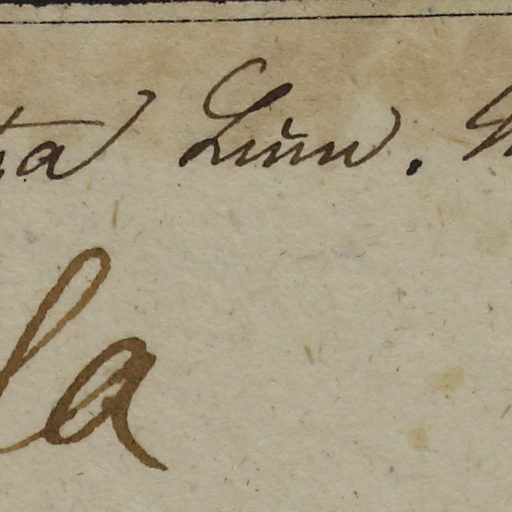 ta Linn.
la